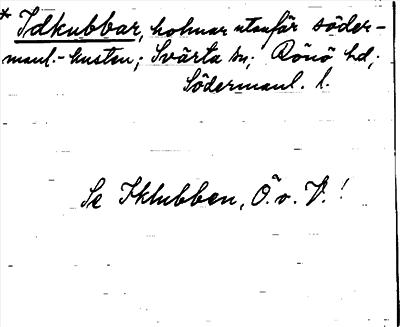 * Idkubbar, holmar utanför söder-
manl.-kusten; Svärta sn; Rönö hd;
Södermanl. l.
Se Iklubben, Ö. v. V.!